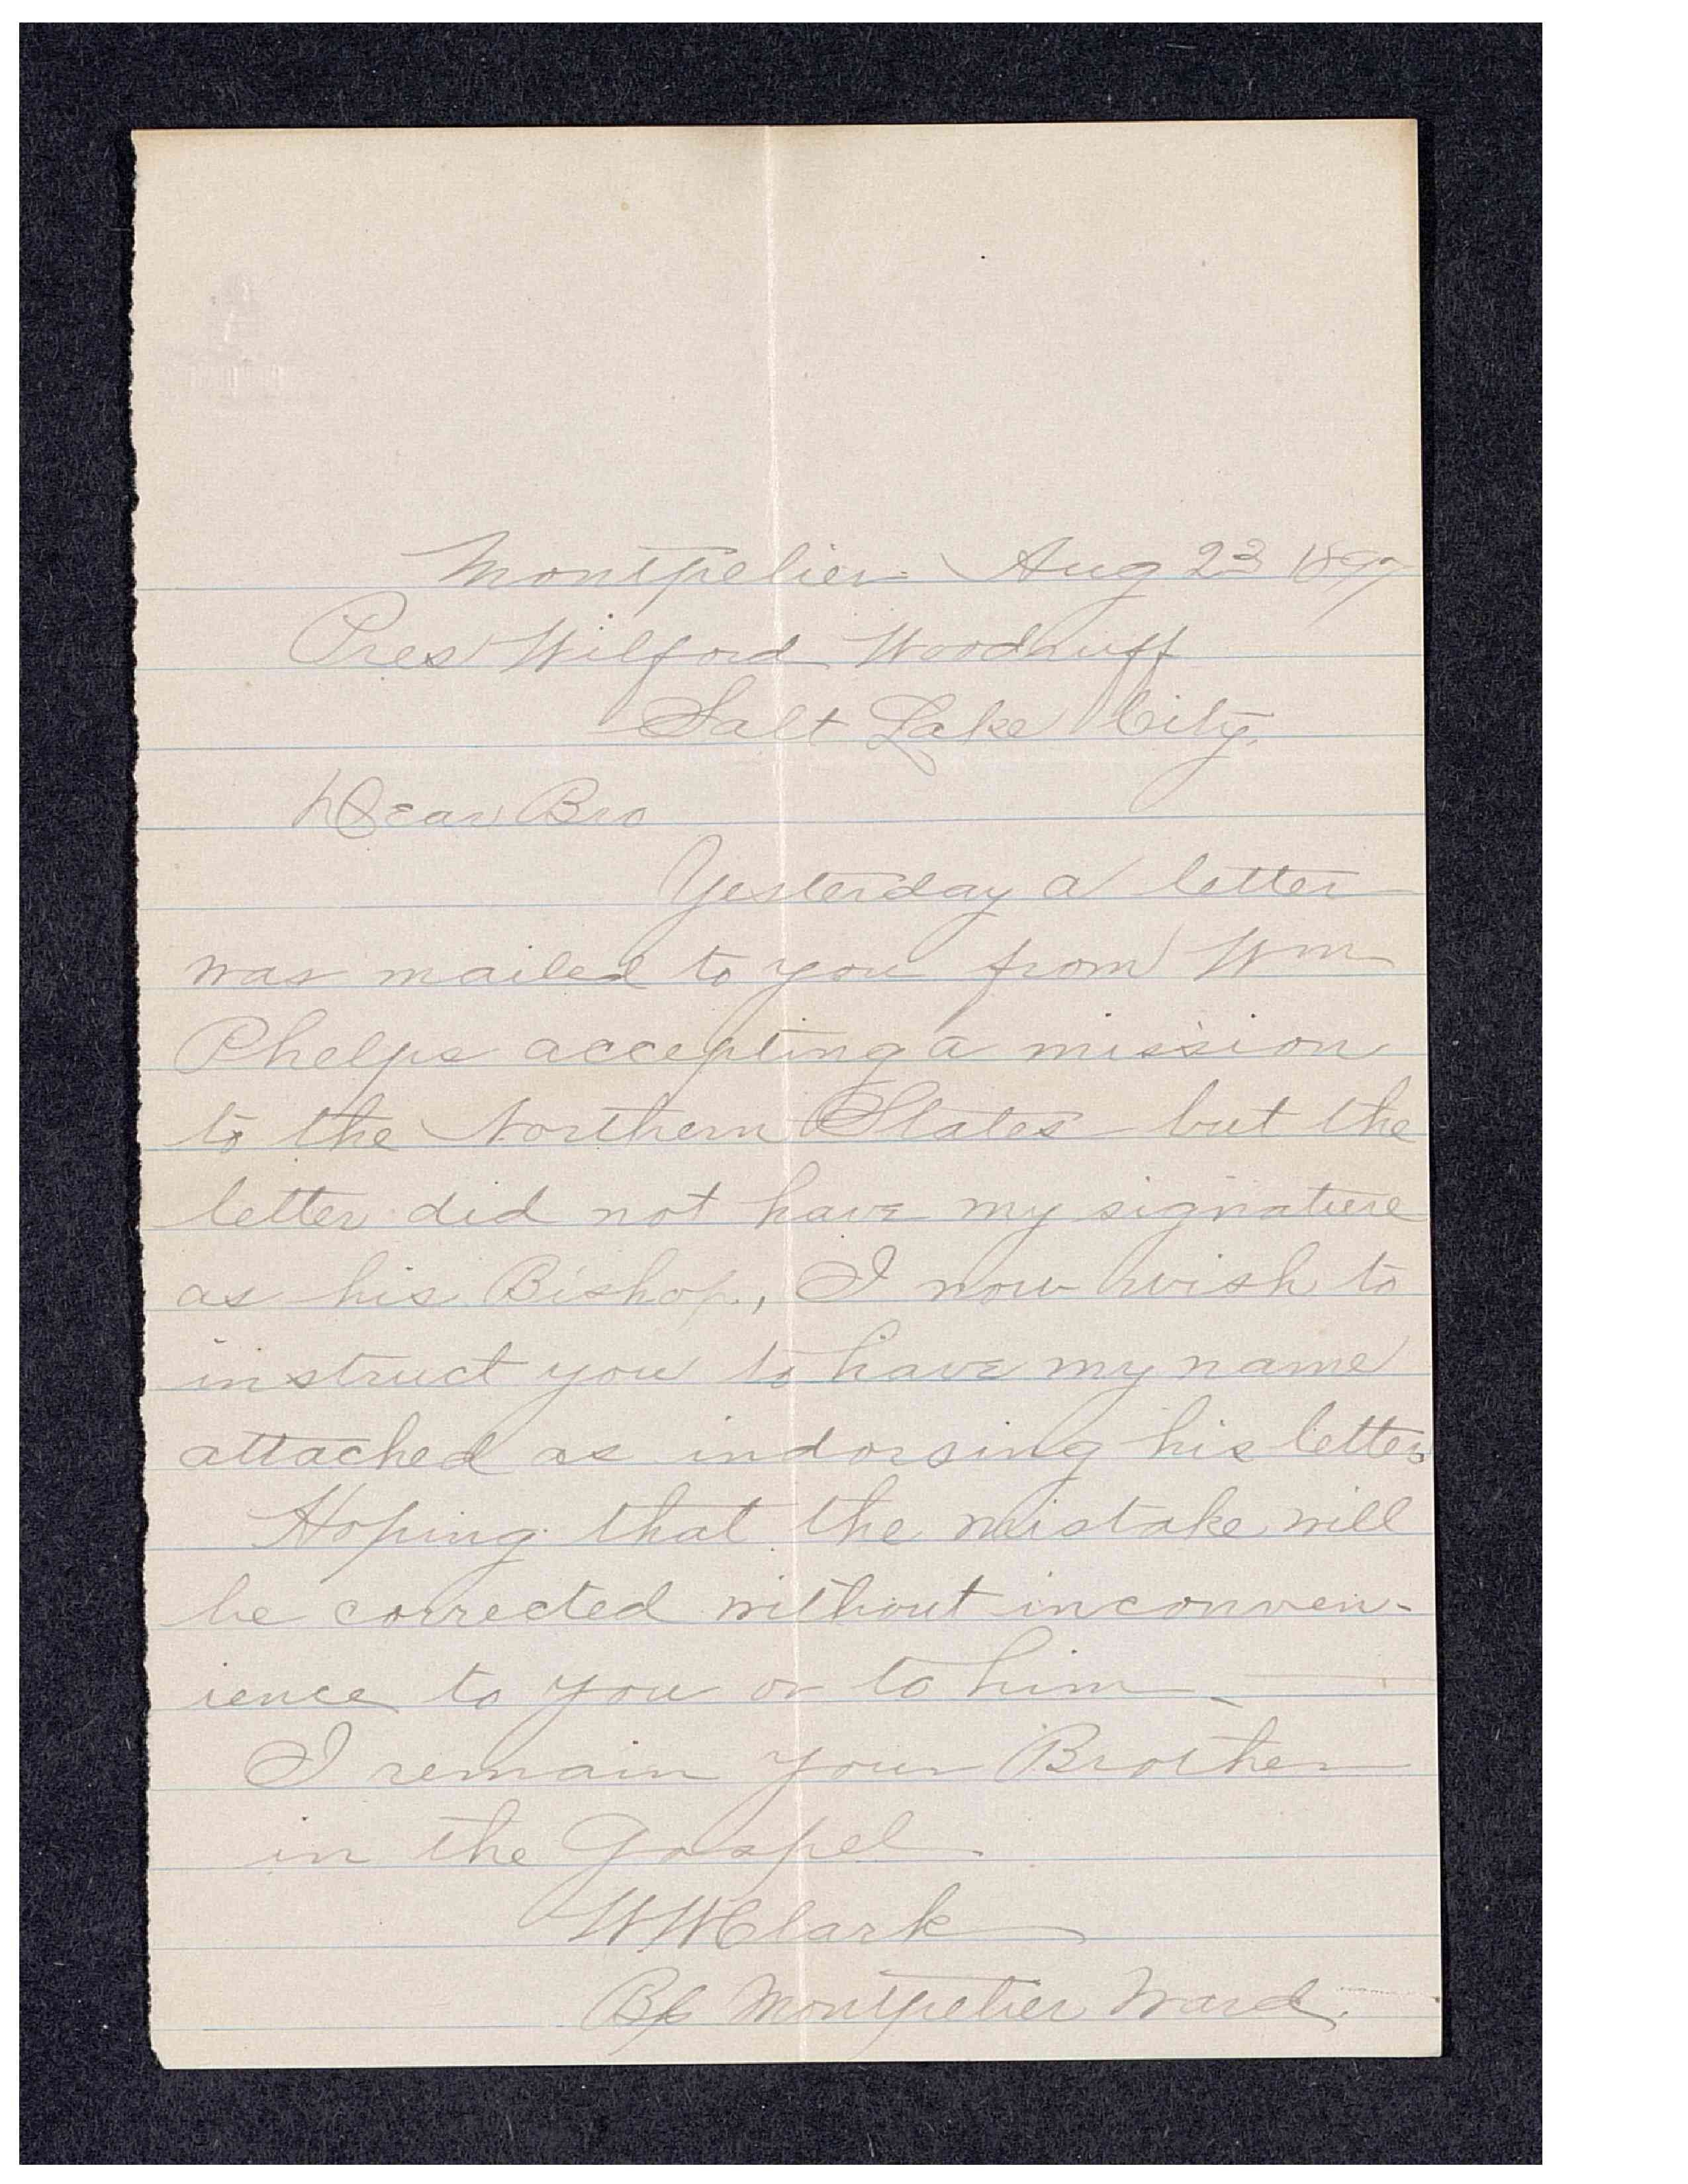 Montpelier Aug 23 1897
Pres Wilford Woodruff
Salt Lake City,
Dear Bro
Yesterday a letter
was mailed to you from Wm
Phelps accepting a mission
to the Northern States but the
letter did not have my signature
as his Bishop, I now wish to
instruct you to have my name
attached as indorsing his letter
Hoping that the mistake will
be corrected without inconven-
ience to you or to him
I remain your Brother
in the Gospel
W.W. Clark
Bp Montpelier Ward.